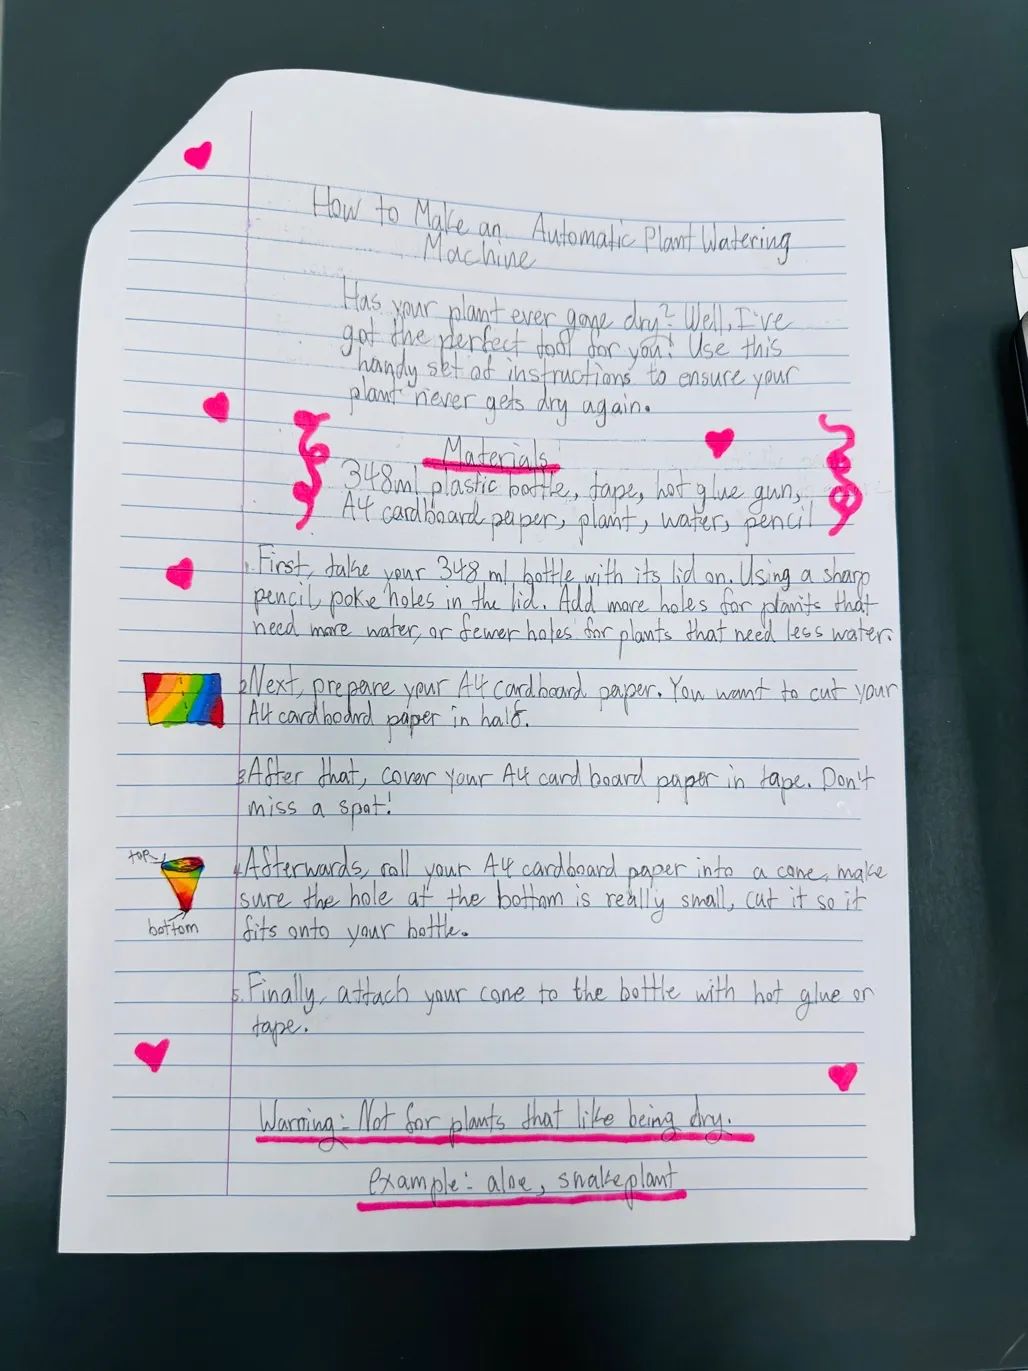 How to Make an Automatic Plant Watering
Machine
Has your plant ever gone dry? Well, I've
got the perfect tool for you! Use this
handy set of instructions to ensure your
plant never gets dry again.
Materials
348ml plastic bottle, tape, hot glue gun,
A4 cardboard paper, plant, water, pencil
1. First, take your 348 ml bottle with its lid on. Using a sharp
pencil, poke holes in the lid. Add more holes for plants that
need more water, or fewer holes for plants that need less water.
2. Next, prepare your A4 cardboard paper. You want to cut your
A4 cardboard paper in half.
3. After that, cover your A4 cardboard paper in tape. Don't
miss a spot!
top
4. Afterwards, roll your A4 cardboard paper into a cone, make
sure the hole at the bottom is really small, cut it so it
bottom
fits onto your bottle.
5. Finally, attach your cone to the bottle with hot glue or
tape.
Warning: Not for plants that like being dry.
example: aloe, snakeplant